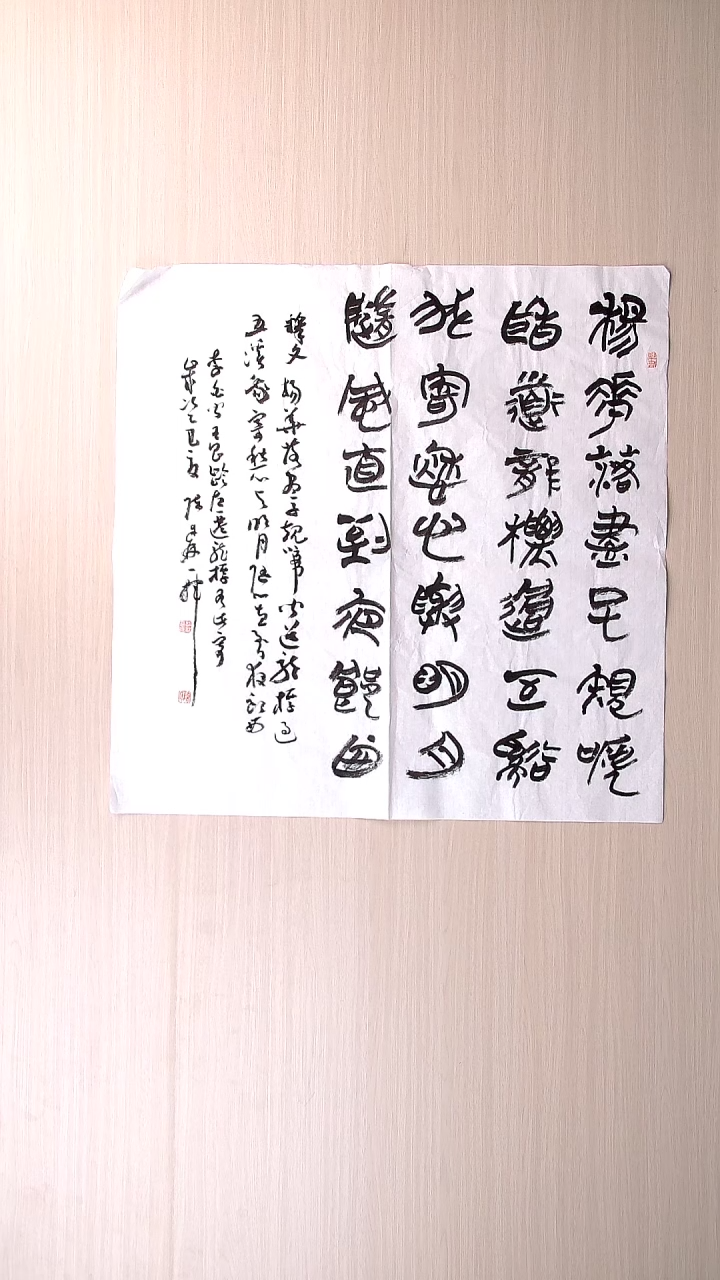 楊花落盡子規啼
聞道龍標過五谿
我寄愁心與明月
隨風直到夜郎西
釋文 楊華落盡子規啼 聞道龍標過
五溪我寄愁心与明月隨風直到夜郎西
李白聞王昌齡左遷龍標有此寄
歲次乙巳夏